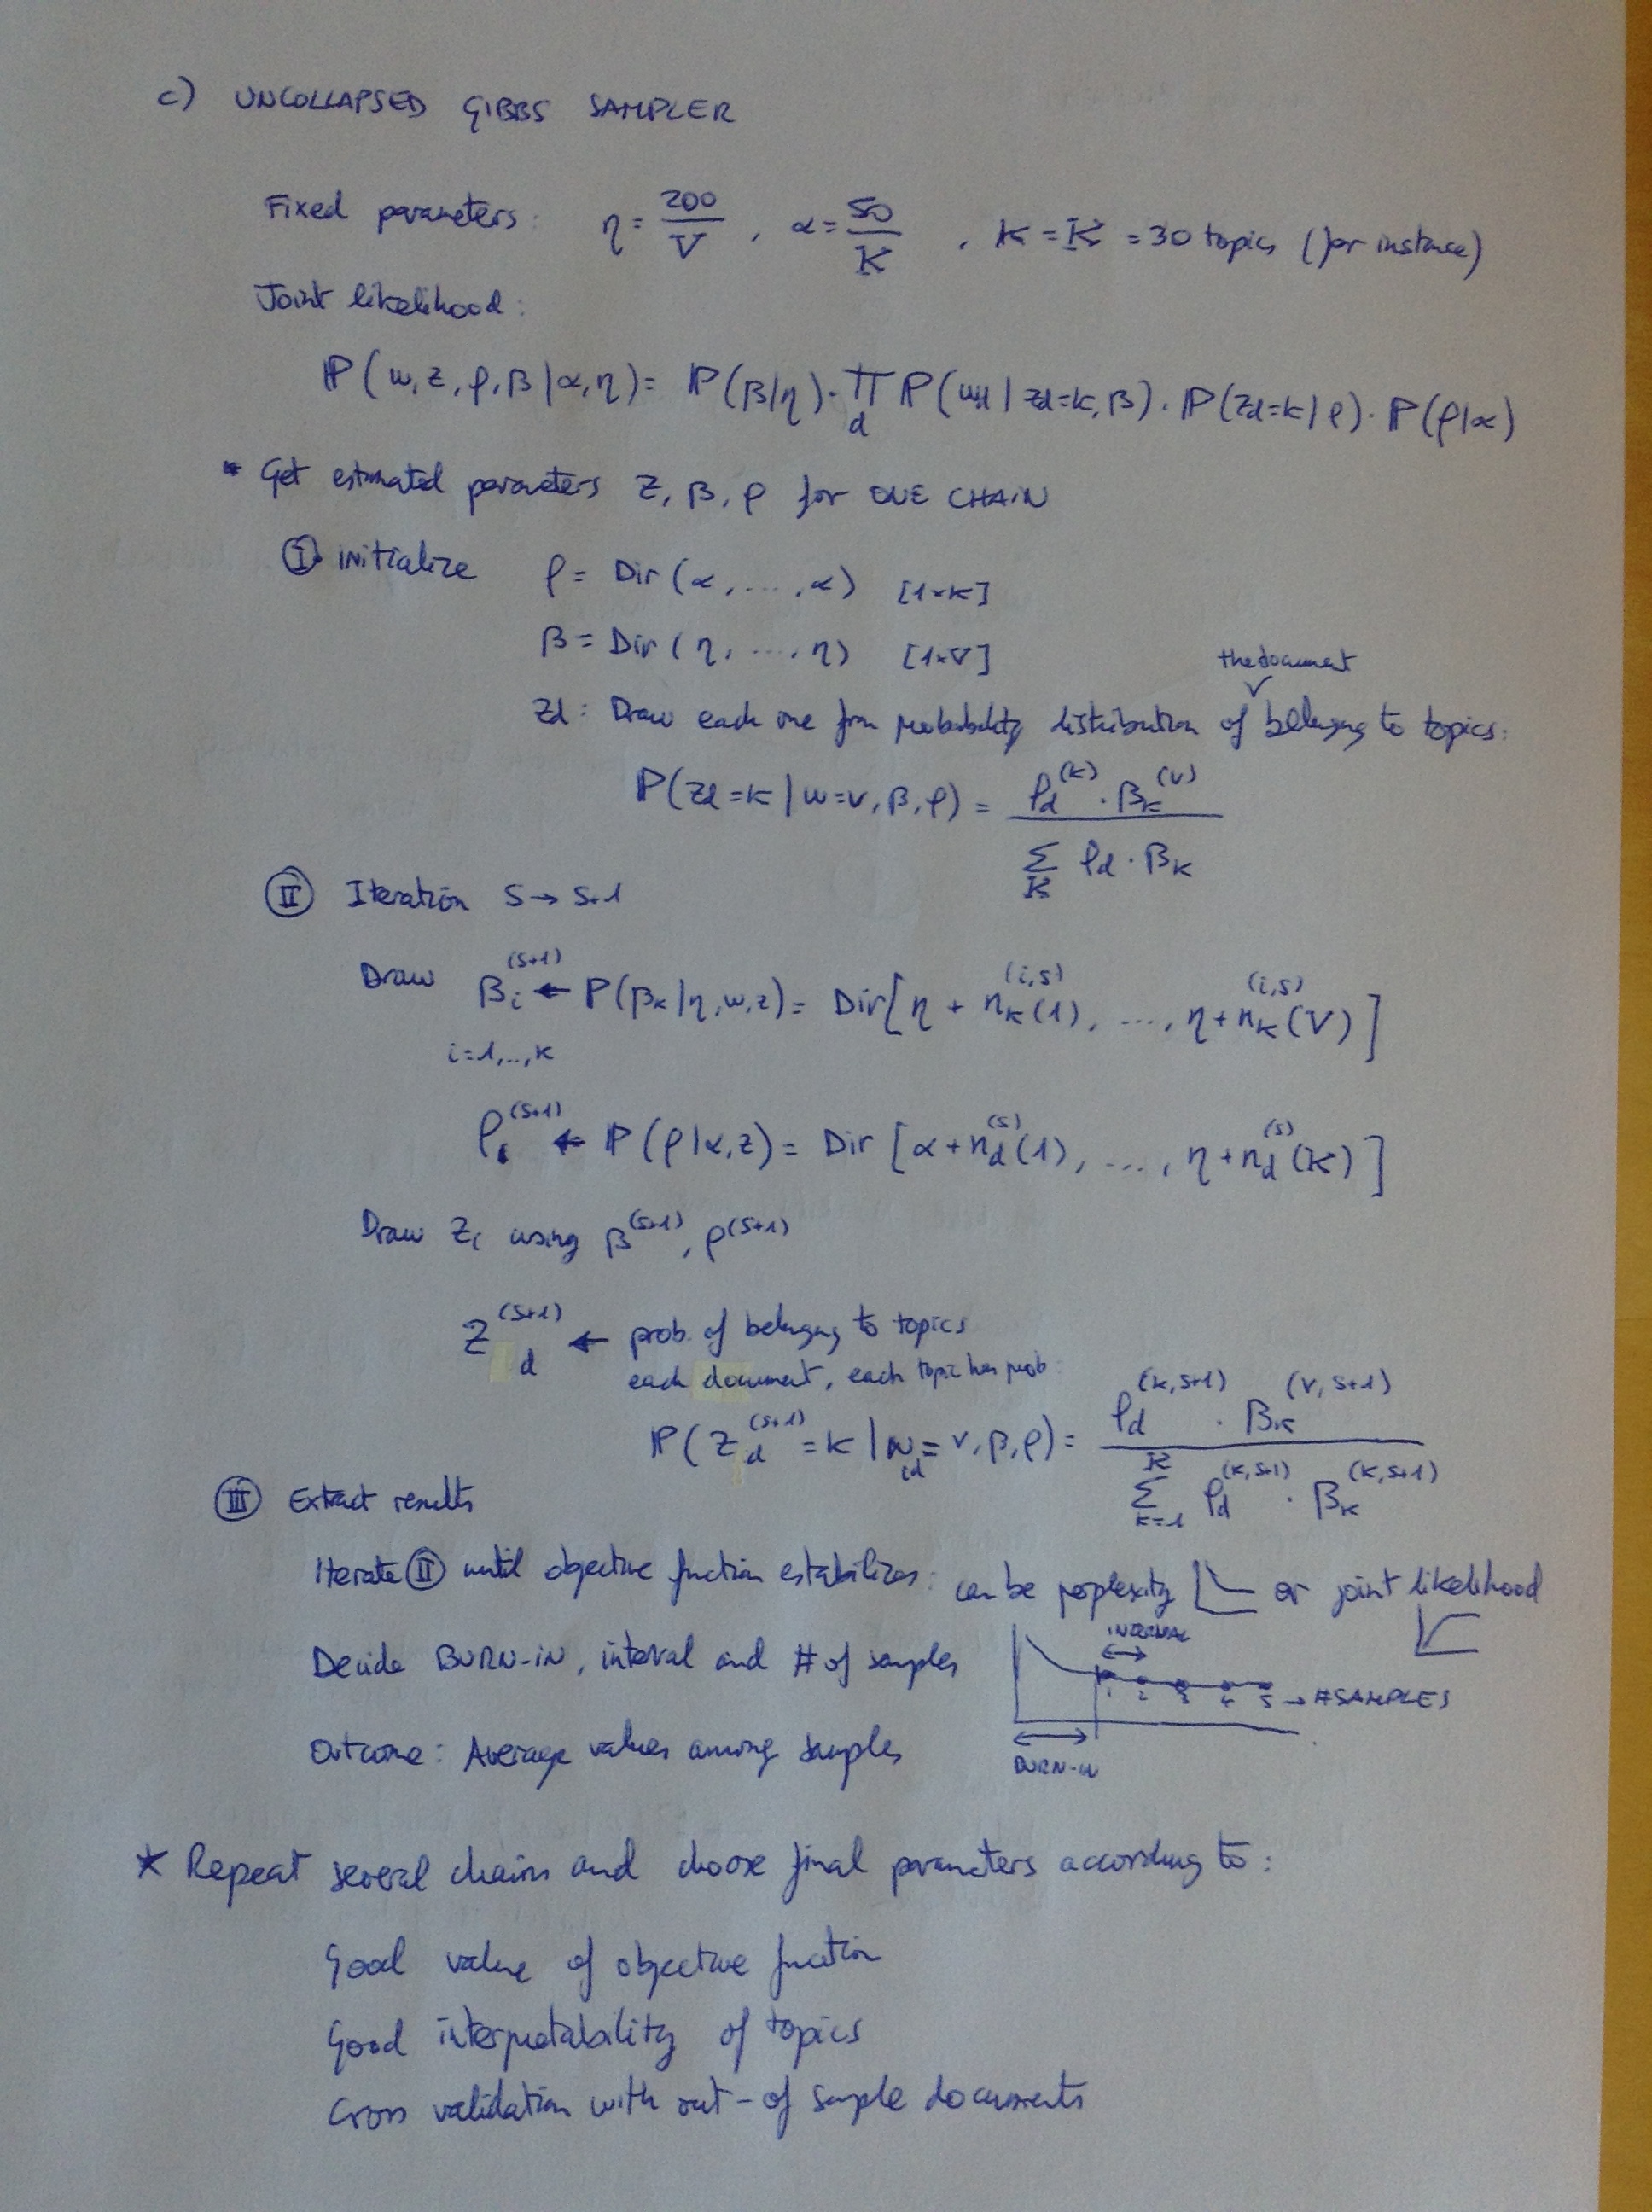 c) UNCOLLAPSED GIBBS SAMPLER
Fixed parameters: η = 200/V , α = 50/K , K = K = 30 topics (for instance)
Joint likelihood:
P(w, z, ρ, β | α, η) = P(β|η) · ∏_d P(w_d | z_d = k, β) · P(z_d = k | ρ) · P(ρ|α)
* Get estimated parameters z, β, ρ for ONE CHAIN
I initialize ρ = Dir (α, ..., α) [1×K]
β = Dir (η, ..., η) [1×V]
the document
z_d : Draw each one from probability distribution of belonging to topics:
P(z_d = k | w = v, β, ρ) = ρ_d^(k) · β_k^(v) / Σ_K ρ_d · β_k
II Iteration s → s+1
Draw β_i^(s+1) ← P(β_k | η, w, z) = Dir[η + n_k^(i,s)(1), ..., η + n_k^(i,s)(V)]
i = 1, .., K
ρ^(s+1) ← P(ρ | α, z) = Dir [α + n_d^(s)(1), ..., η + n_d^(s)(K)]
Draw z_i using β^(s+1), ρ^(s+1)
z_d^(s+1) ← prob. of belonging to topics
each document, each topic has prob
P(z_d^(s+1) = k | w_id = v, β, ρ) = ρ_d^(k,s+1) · β_k^(v,s+1) / Σ_{k=1}^K ρ_d^(k,s+1) · β_k^(k,s+1)
III Extract results
Iterate II until objective function estabilizes: can be perplexity or joint likelihood
INTERVAL
Decide BURN-IN, interval and # of samples
1 2 3 4 5 → #SAMPLES
Outcome: Average values among samples
BURN-IN
* Repeat several chains and choose final parameters according to:
Good value of objective function
Good interpretability of topics
Cross validation with out-of sample documents